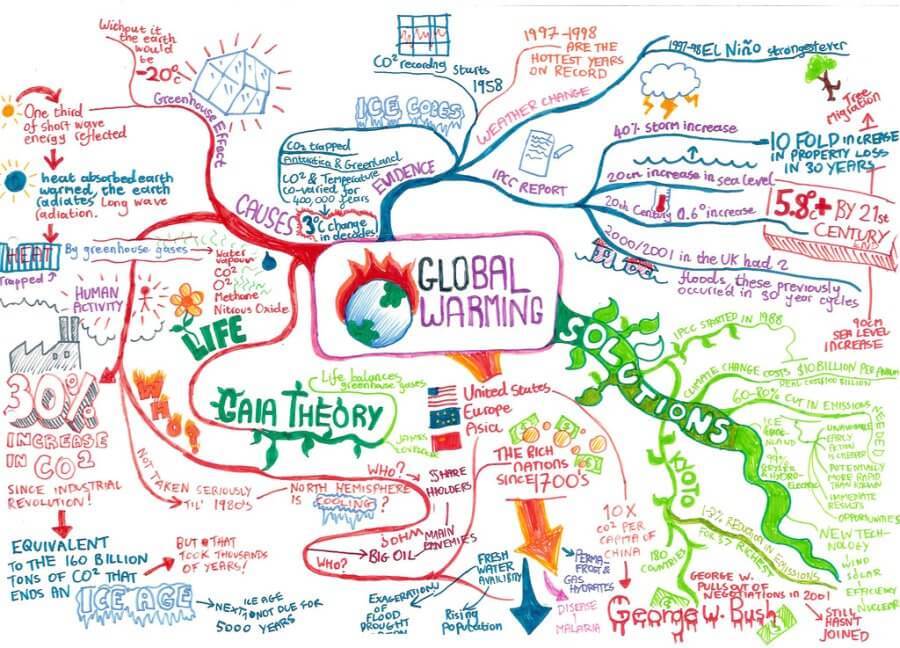 Without it
the earth
would
be
-20°c
Greenhouse Effect
One third
of short wave
energy reflected
heat absorbed earth
warmed, the earth
radiates long wave
radiation.
HEAT
Trapped
By greenhouse gases
Water
vapour
CO²
O²
Methane
Nitrous Oxide
CAUSES
HUMAN
ACTIVITY
LIFE
30%
INCREASE
IN CO²
SINCE INDUSTRIAL
REVOLUTION!
EQUIVALENT
TO THE 160 BILLION
TONS OF CO² THAT
ENDS AN
ICE AGE
BUT THAT
TOOK THOUSANDS
OF YEARS!
ICE AGE
NEXT NOT DUE FOR
5000 YEARS
WHO?
NOT TAKEN SERIOUSLY
TIL' 1980'S
NORTH HEMISPHERE
IS COOLING?
GAIA THEORY
Life balances
greenhouse gases
JAMES
CO² recording starts
1958
ICE Cores
CO² trapped
Antartica & Greenland
CO² & Temperature
co-varied for
400,000 years
3°C change
in decades
EVIDENCE
1997-1998
ARE THE
HOTTEST YEARS
ON RECORD
WEATHER CHANGE
1997-98 EL NiÑo strongest ever
IPCC REPORT
40% storm increase
10 FOLD INCREASE
IN PROPERTY LOSS
IN 30 YEARS
Tree
Migration
20cm increase in sea level
20th Century 0.6° increase
5.8°+ BY 21st
CENTURY
END
2000/2001 in the UK had 2
floods, these previously
occurred in 30 year cycles
90cm
SEA LEVEL
INCREASE
GLOBAL
WARMING
United States
Europe
Asia
THE RICH
NATIONS
SINCE 1700'S
WHO?
SHARE
HOLDERS
MAIN
BIG OIL
WHO?
10X
CO² PER
CAPITA OF
CHINA
FRESH
WATER
PERMA
FROST &
GAS
HYDRATES
DISEASE
MALARIA
EXAGERATION
OF
FLOOD
DROUGHT
Rising
Population
George W. Bush
SOLUTIONS
IPCC STARTED IN 1988
CLIMATE CHANGE COSTS $10 BILLION PER ANNUM
60-80% CUT IN EMISSIONS
NEEDED
POTENTIALLY
MORE RAPID
OPPORTUNITIES
NEW TECH-
NOLOGY
WIND
SOLAR
EFFICIENCY
NUCLEAR
KYOTO
180
COUNTRIES
GEORGE W.
PULLS OUT OF
NEGOTIATIONS IN 2001
STILL
HASN'T
JOINED